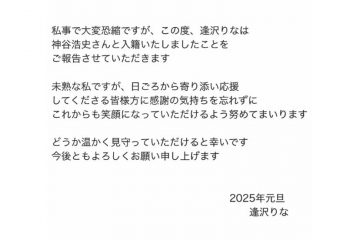 私事で大変恐縮ですが、この度、逢沢りなは
神谷浩史さんと入籍いたしましたことを
ご報告させていただきます
未熟な私ですが、日ごろから寄り添い応援
してくださる皆様方に感謝の気持ちを忘れずに
これからも笑顔になっていただけるよう努めてまいります
どうか温かく見守っていただけると幸いです
今後ともよろしくお願い申し上げます
2025年元旦
逢沢りな